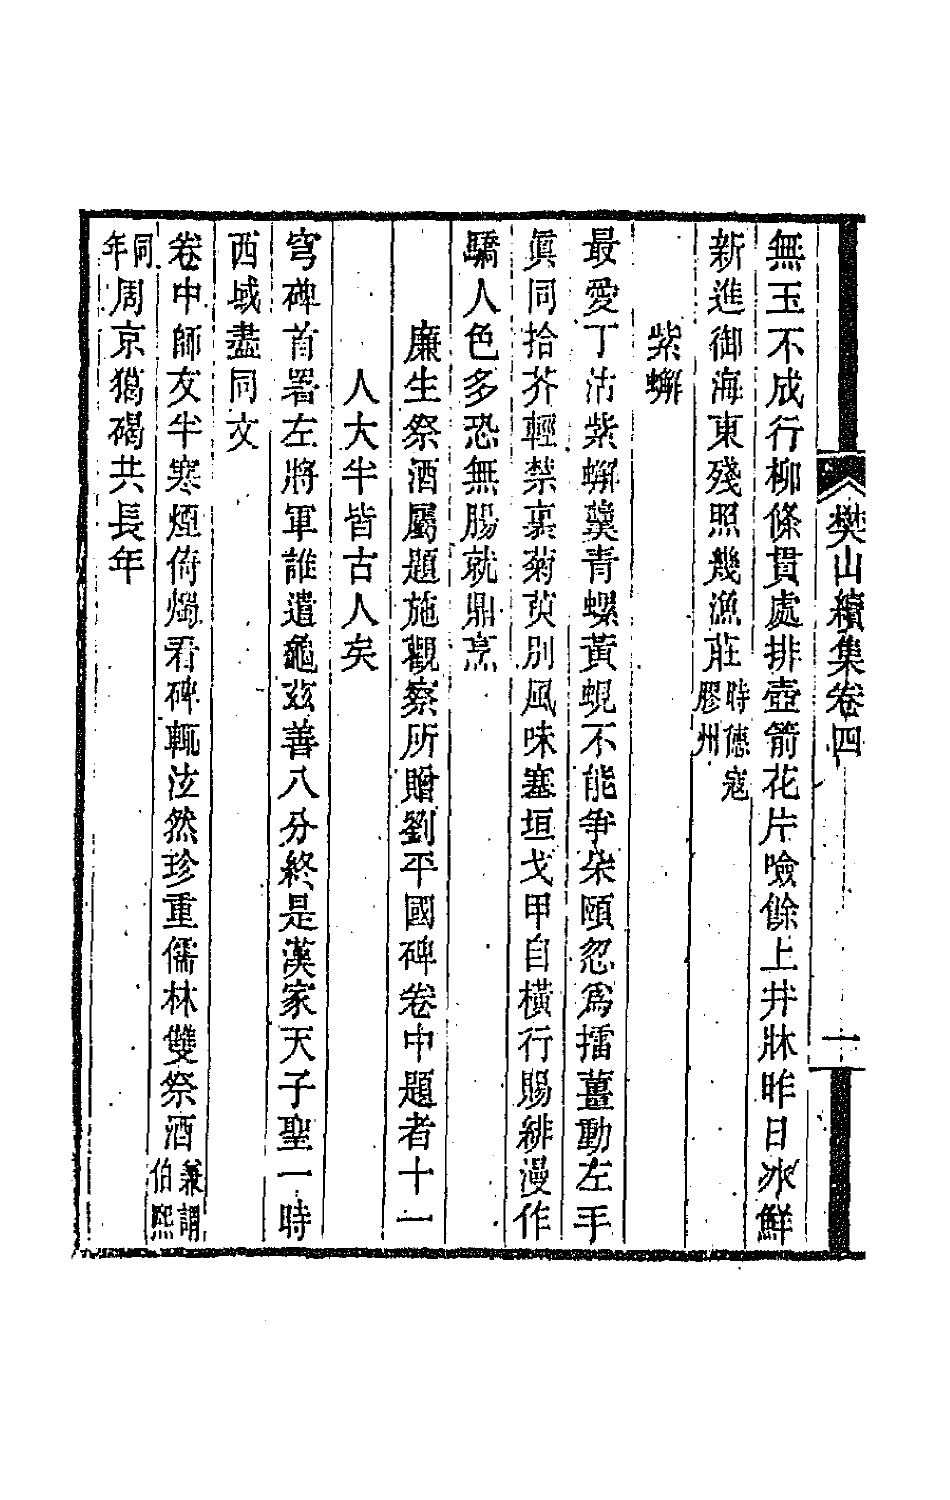 樊山續集卷四
一
無玉不成行柳條貫處排壺箭花片噞餘上井牀昨日冰鮮
新進御海東殘照幾漁莊時德寇膠州
紫蠏
最愛丁沽紫蠏羹青螺黃蜆不能爭朵頤忽爲擂薑動左手
眞同拾芥輕禁裏菊萸別風味塞垣戈甲自橫行賜緋漫作
驕人色多恐無腸就鼎烹
廉生祭酒屬題施觀察所贈劉平國碑卷中題者十一
人大半皆古人矣
穹碑首署左將軍誰遣龜茲善八分終是漢家天子聖一時
西域盡同文
卷中師友半寒煙俯燭看碑輒泫然珍重儒林雙祭酒兼謂伯熙
同年周京獵碣共長年